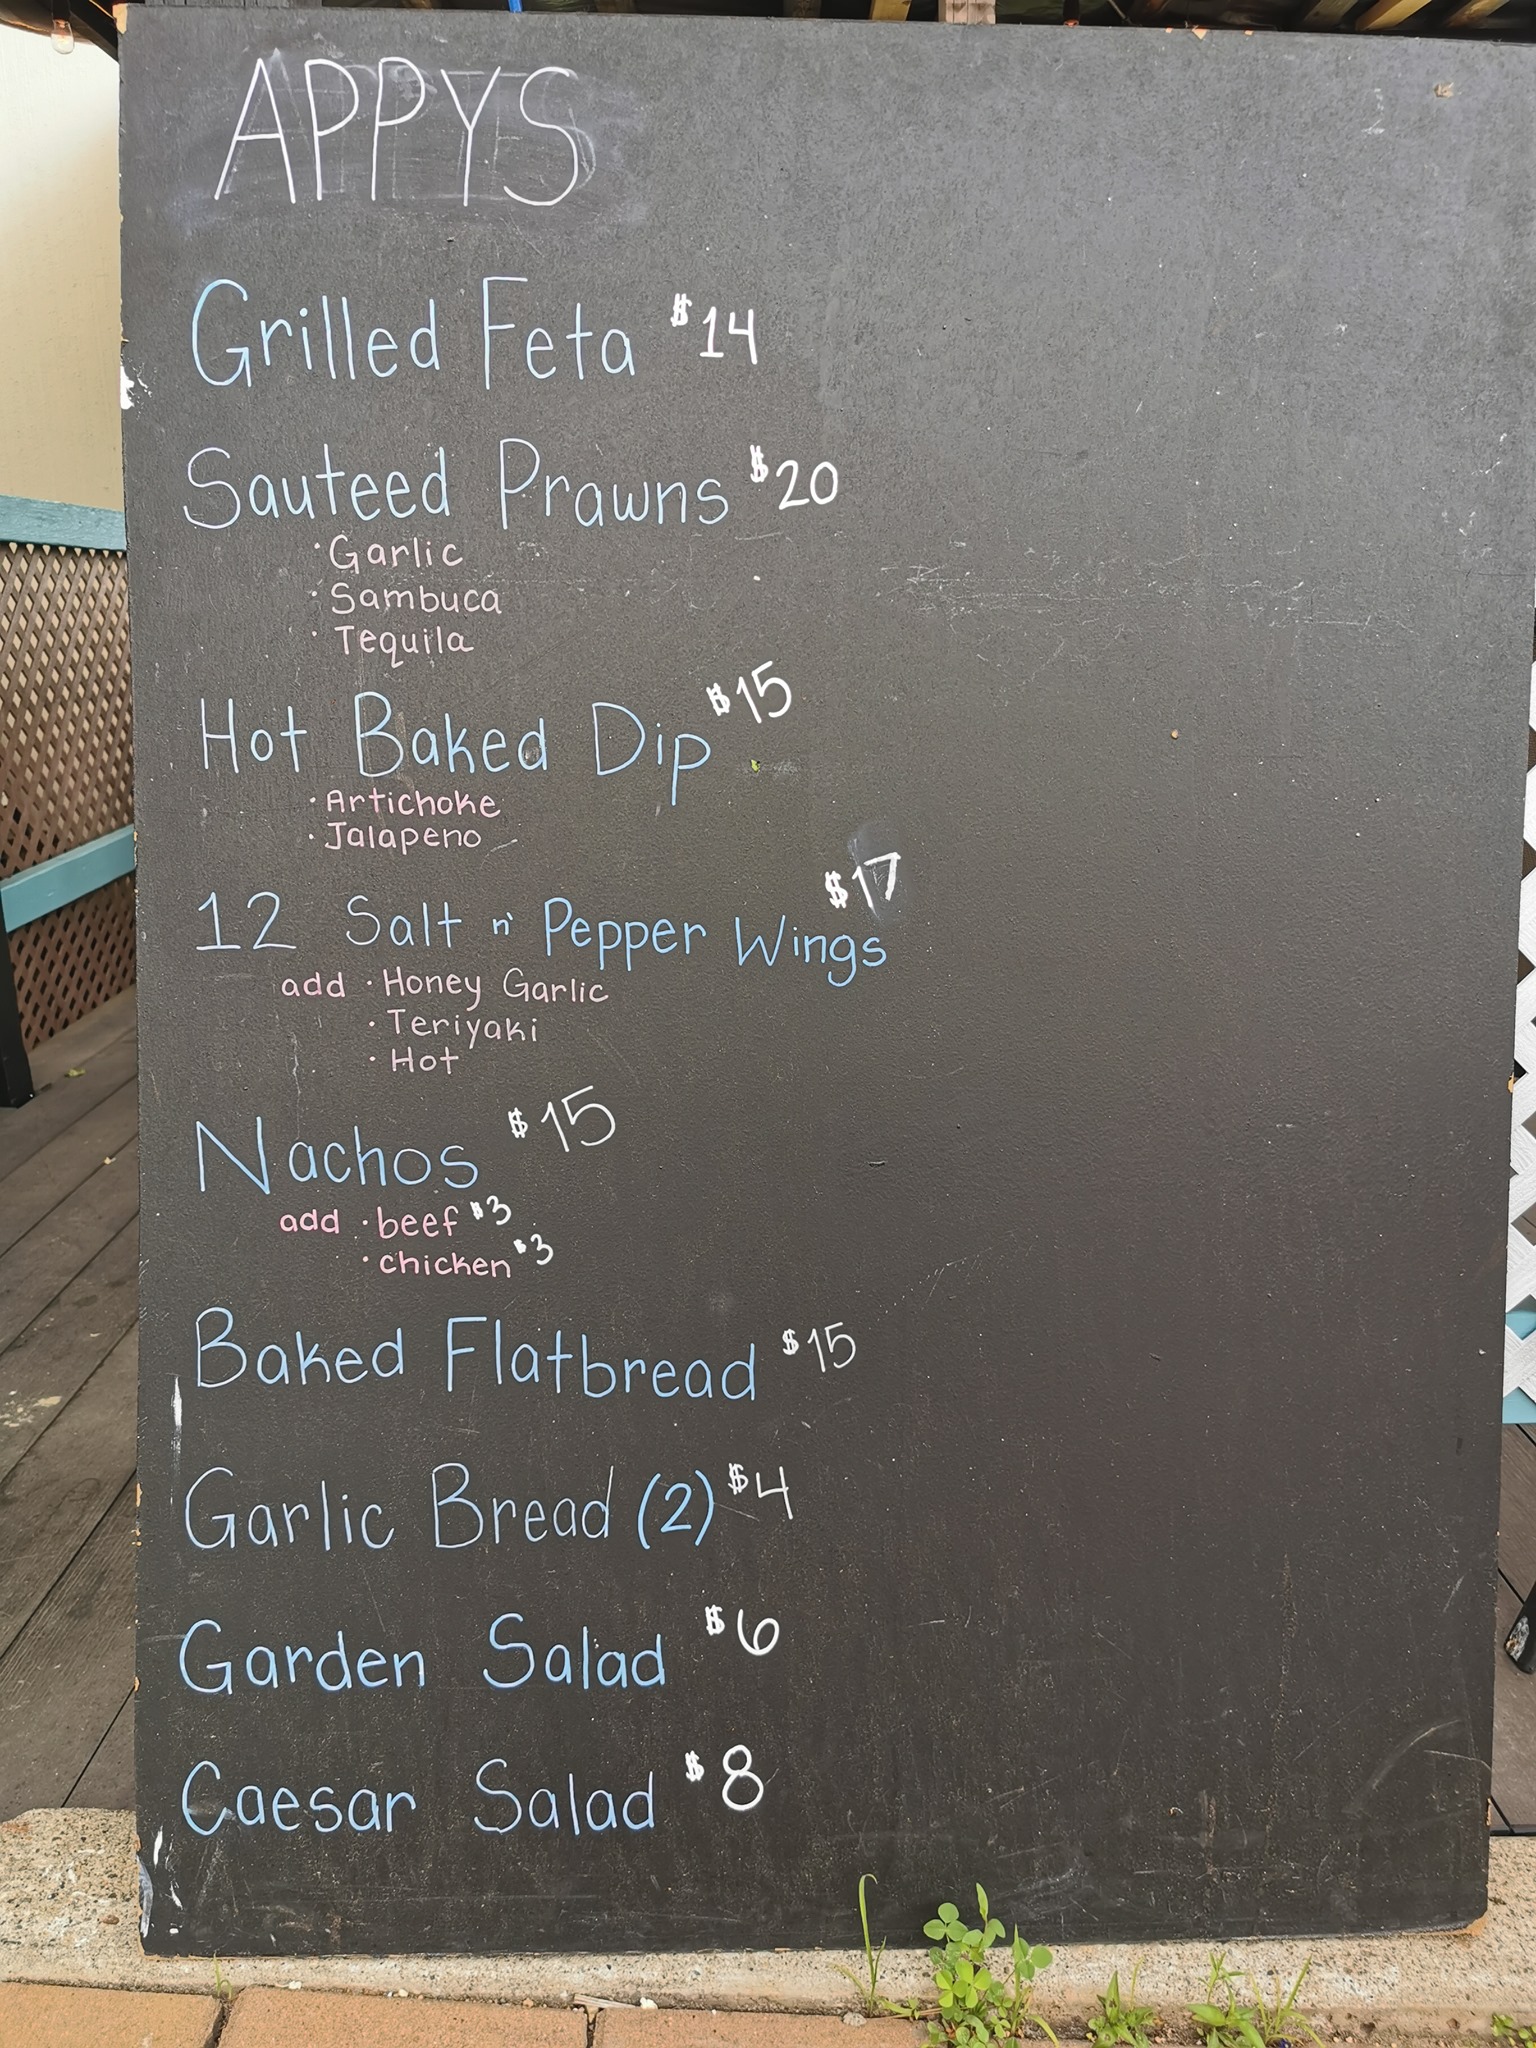 APPYS
Grilled Feta $14
Sauteed Prawns $20
· Garlic
· Sambuca
· Tequila
Hot Baked Dip $15
· Artichoke
· Jalapeno
12 Salt n' Pepper Wings $17
add · Honey Garlic
· Teriyaki
· Hot
Nachos $15
add · beef $3
· chicken $3
Baked Flatbread $15
Garlic Bread (2) $4
Garden Salad $6
Caesar Salad $8